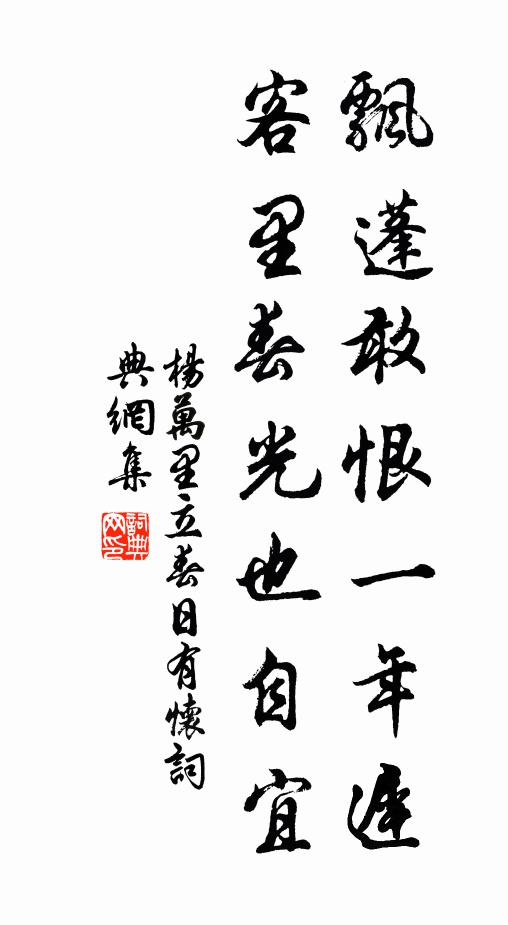 飄蓬敢恨一年遲
客里春光也自宜
楊萬里立春日有懷詞
典網集
詞典
网印